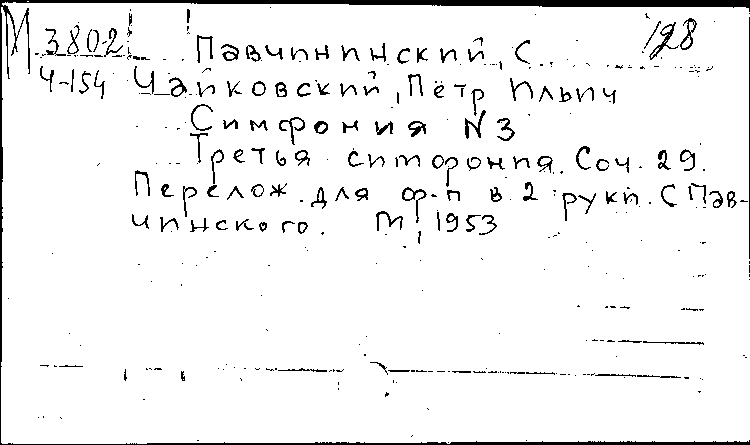 М 3802 Павчининский, С 128
Ч-154 Чайковский, Пётр Ильич
Симфония N 3
Третья симфония. Соч. 29.
Перелож. для ф-п в 2 руки. С Пав-
чинского. М, 1953